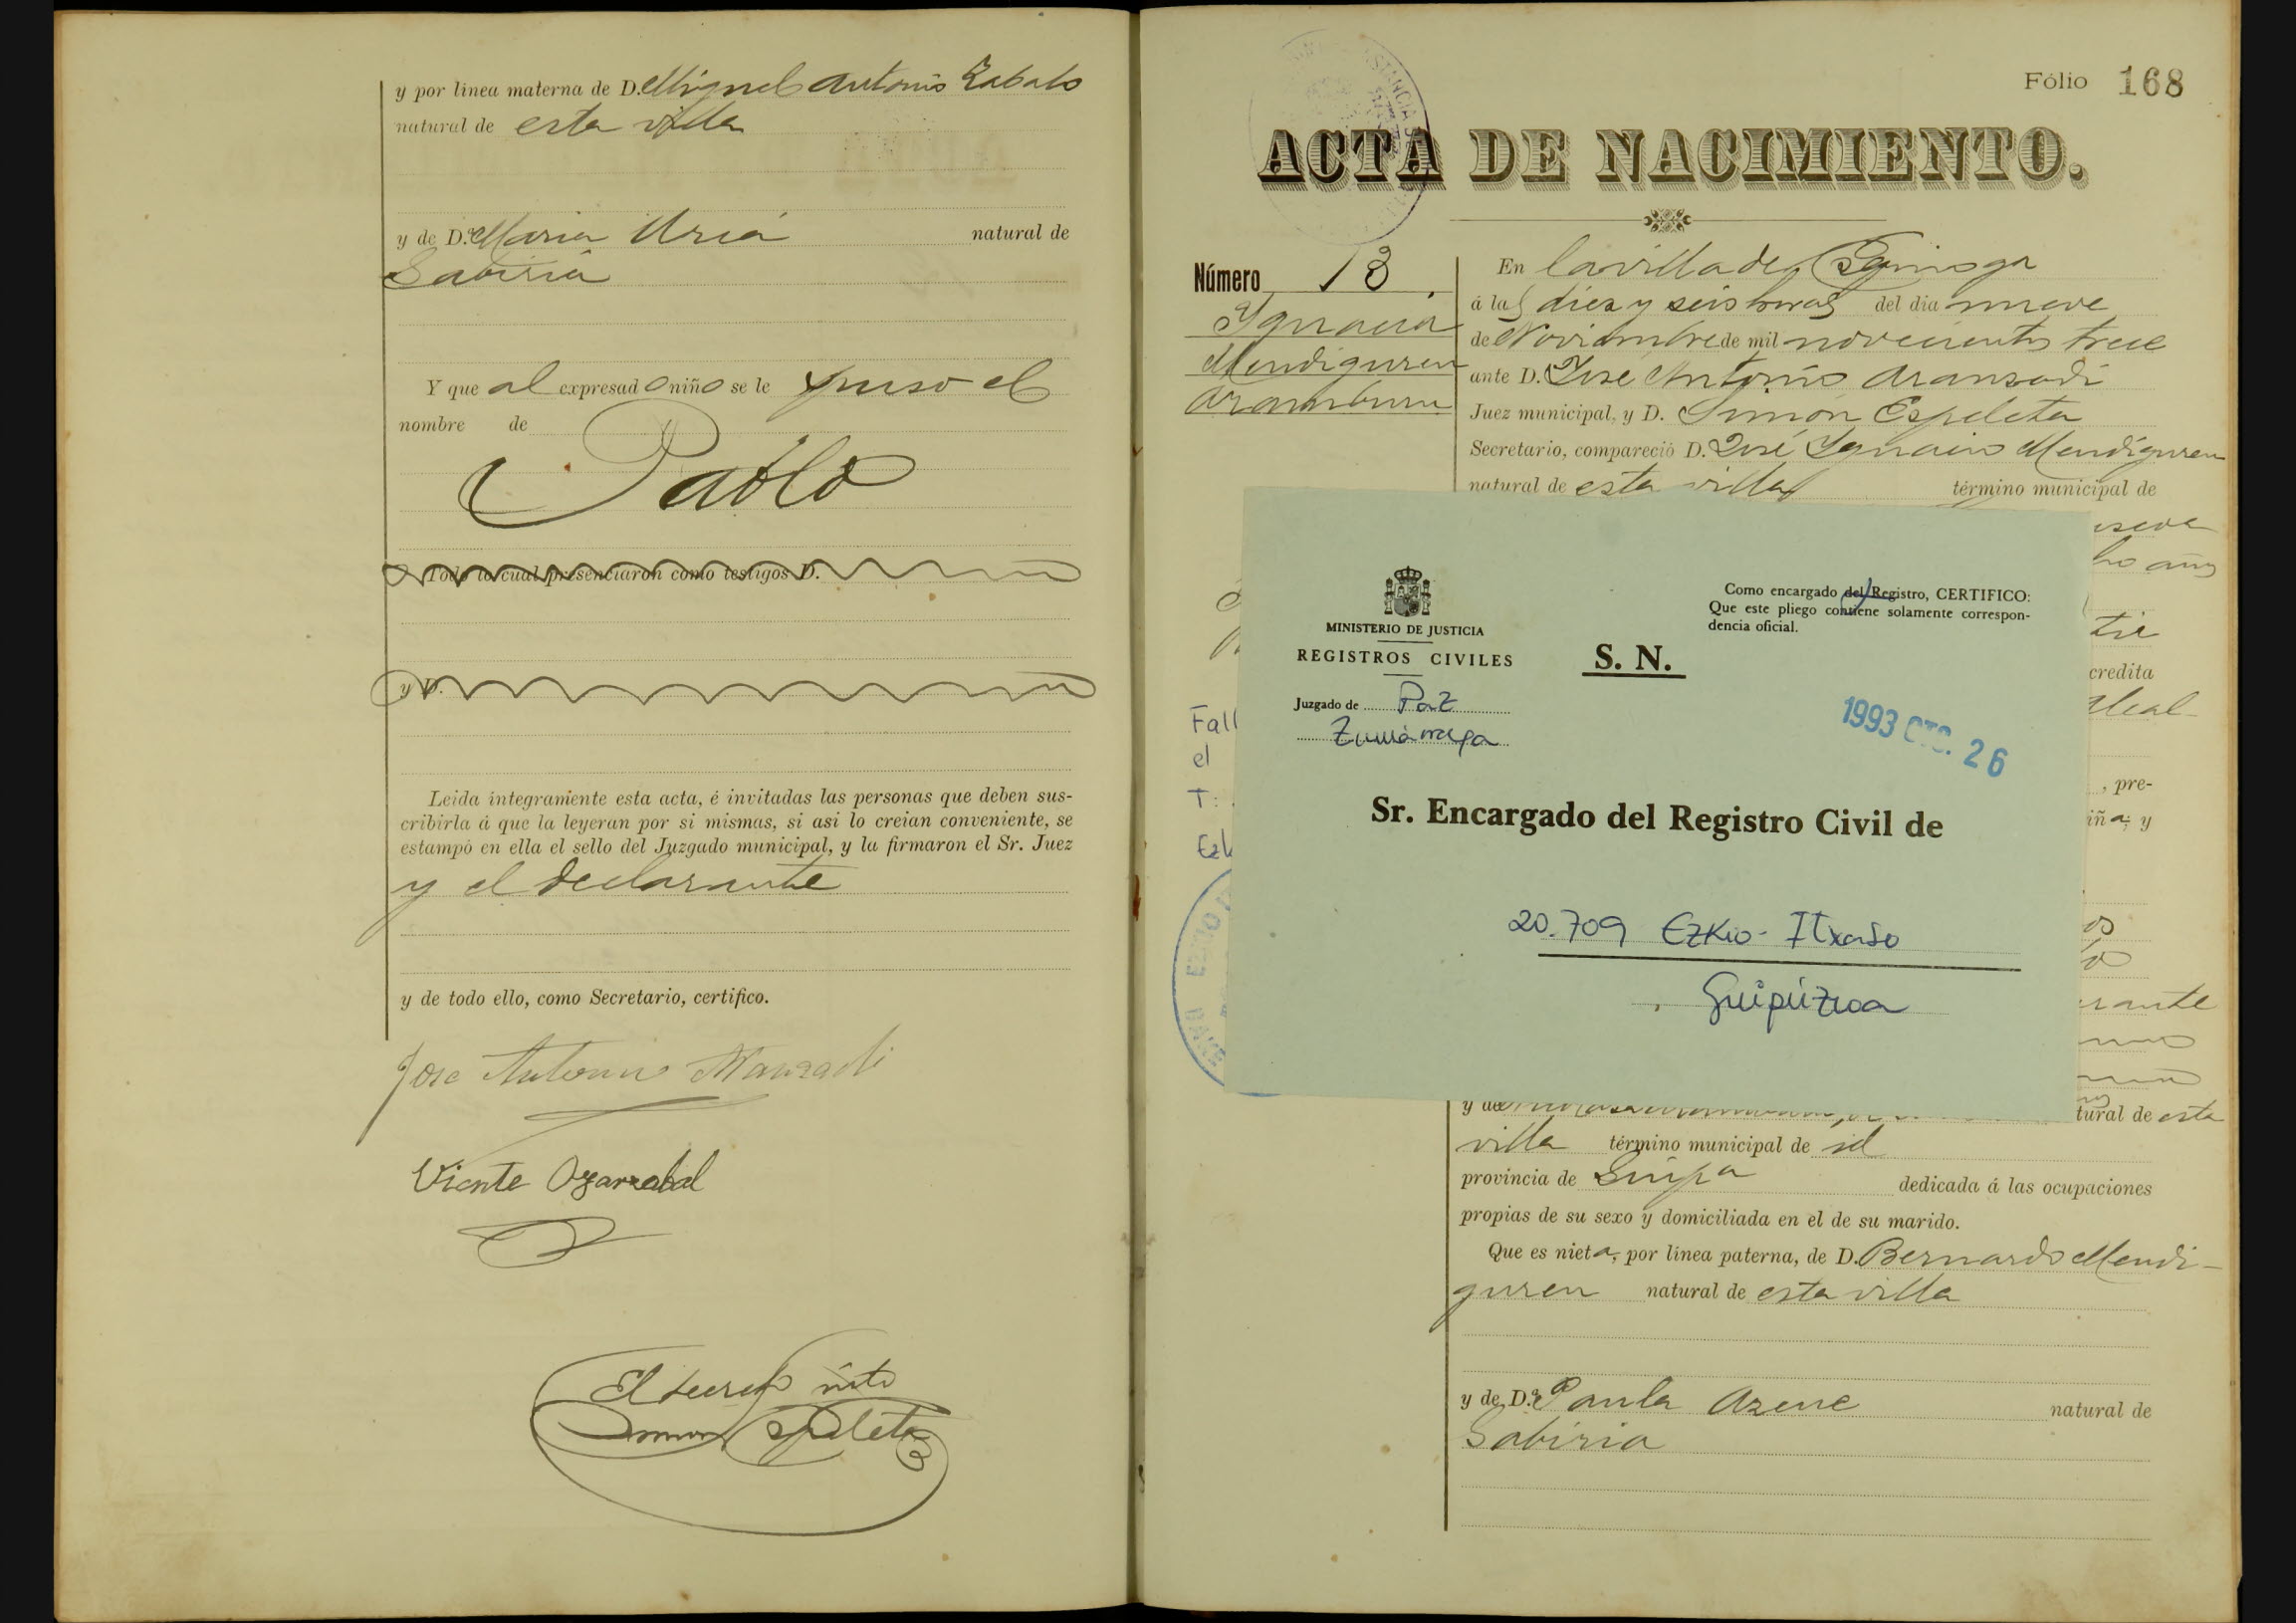 y por linea materna de D. Miguel Antonio Zabalo
natural de esta villa
y de D.ª Maria Uria natural de
Gabiria
Y que al expresado niño se le puso el
nombre de
Pablo
Todo lo cual presenciaron como testigos D.
y D.
Leida íntegramente esta acta, é invitadas las personas que deben sus-
cribirla á que la leyeran por si mismas, si asi lo creian conveniente, se
estampó en ella el sello del Juzgado municipal, y la firmaron el Sr. Juez
y el declarante
y de todo ello, como Secretario, certifico.
Jose Antonio Aranzadi
Vicente Oyarzabal
El secret°
Simon Espeleta
Fólio 168
ACTA DE NACIMIENTO.
Número 13.
Ygnacia
Mendiguren
Aramburu
En la villa de Ezquioga
á las diez y seis horas del dia nueve
de Noviembre de mil novecientos trece
ante D. José Antonio Aranzadi
Juez municipal, y D. Simón Espeleta
Secretario, compareció D. José Ygnacio Mendiguren
natural de esta villa término municipal de
ho años
credita
, pre-
iña, y
Fall
el
T:
Ezk
MINISTERIO DE JUSTICIA
REGISTROS CIVILES
Juzgado de Paz
Zumárraga
S. N.
Como encargado del Registro, CERTIFICO:
Que este pliego contiene solamente correspon-
dencia oficial.
1993 OTS. 26
Sr. Encargado del Registro Civil de
20.709 Ezkio-Itxaso
Guipúzcoa
rante
y de tural de esta
villa término municipal de id
provincia de Guipa dedicada á las ocupaciones
propias de su sexo y domiciliada en el de su marido.
Que es nieta, por línea paterna, de D. Bernardo Mendi-
guren natural de esta villa
y de D.ª Paula Azcue natural de
Gabiria